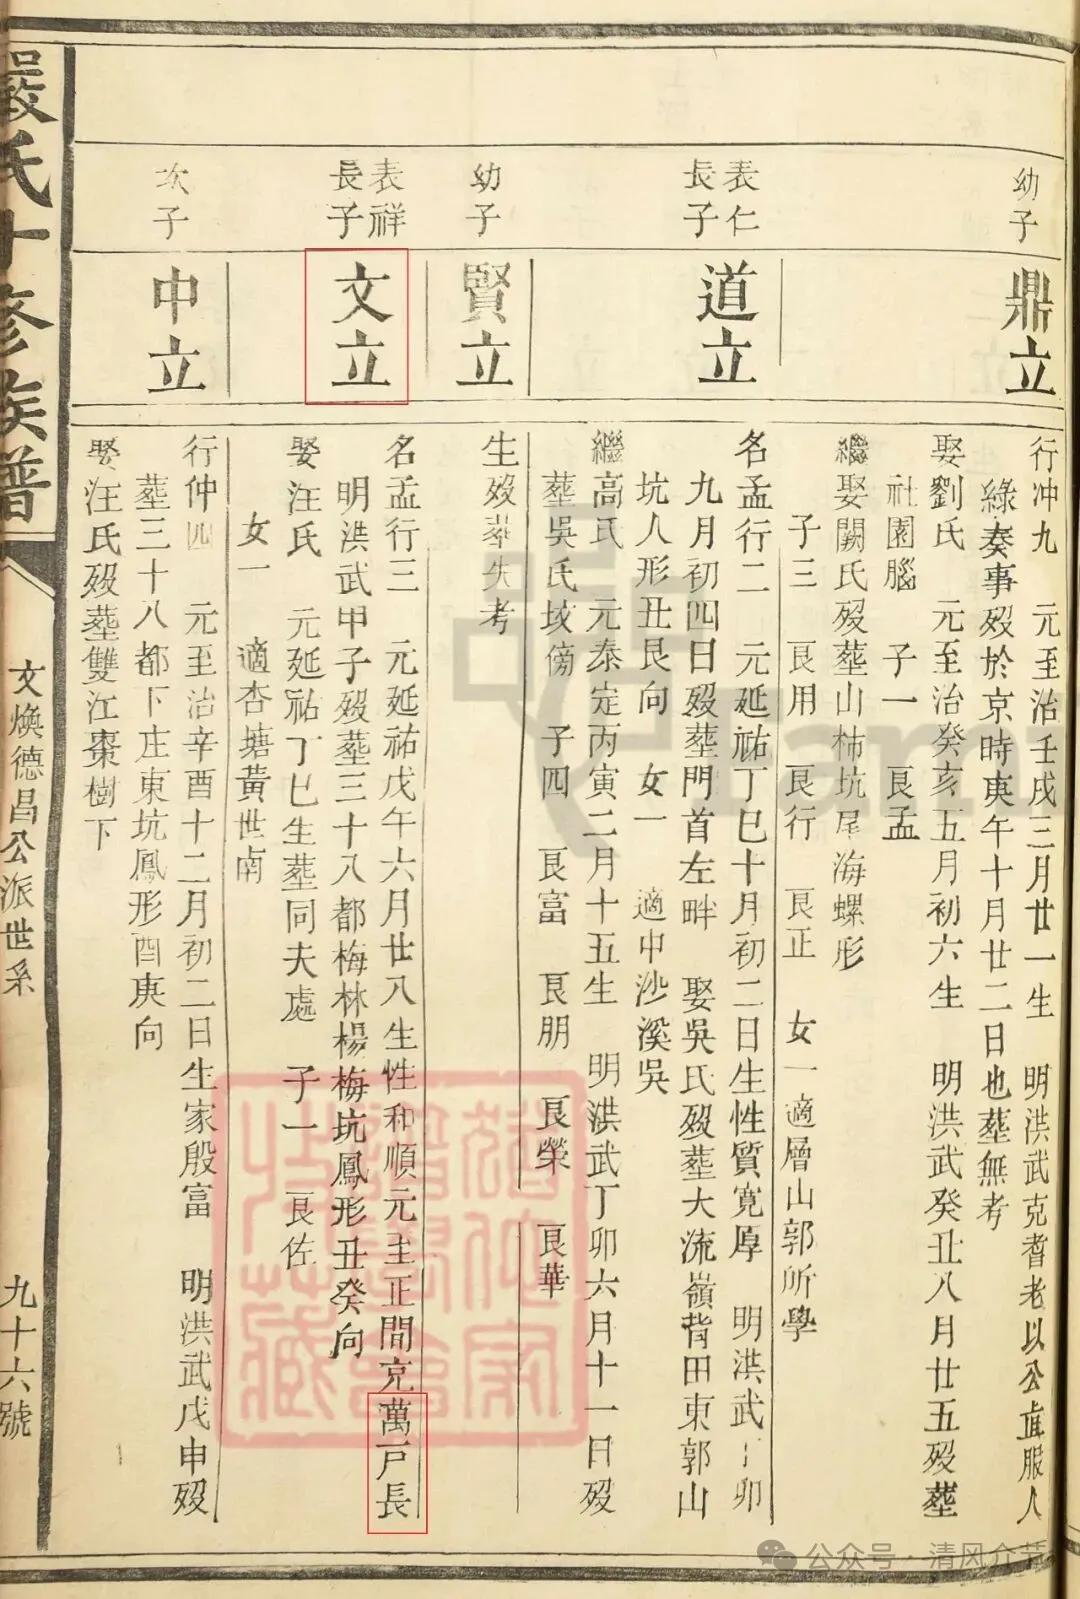 幼子
鼎立
行冲九　元至治壬戌三月廿一生　明洪武克耆老以公直服人
綠奏事殁於京時庚午十月廿二日也塟無考
娶劉氏　元至治癸亥五月初六生　明洪武癸丑八月廿五殁塟
社園腦　子一　良孟
繼娶闕氏殁塟山柿坑尾海螺形
子三　良用　良行　良正　女一適層山郭所學
表仁
長子
道立
名孟行二　元延祐丁巳十月初二日生性質寬厚　明洪武丁卯
九月初四日殁塟門首左畔　娶吳氏殁塟大流嶺背田東郭山
坑人形丑艮向　女一　適中沙溪吳
繼高氏　元泰定丙寅二月十五生　明洪武丁卯六月十一日殁
塟吳氏坟傍　子四　良富　良朋　良榮　良華
幼子
賢立
生殁塟失考
表祥
長子
文立
名孟行三　元延祐戊午六月廿八生性和順元主正間充萬戸長
明洪武甲子殁塟三十八都梅林楊梅坑鳳形丑癸向
娶汪氏　元延祐丁巳生塟同夫處　子一　良佐
女一　適杏塘黃世南
次子
中立
行仲四　元至治辛酉十二月初二日生家殷富　明洪武戊申殁
塟三十八都下庄東坑鳳形酉庚向
娶汪氏殁塟雙江棗樹下
嚴氏十修族譜
文煥德昌公派世系
九十六號
公众号·清风介芳